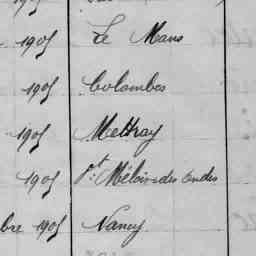 1905 Le Mans
1905 Colombes
1905 Mettray
1905 St Méloir des Ondes
bre 1905 Nancy